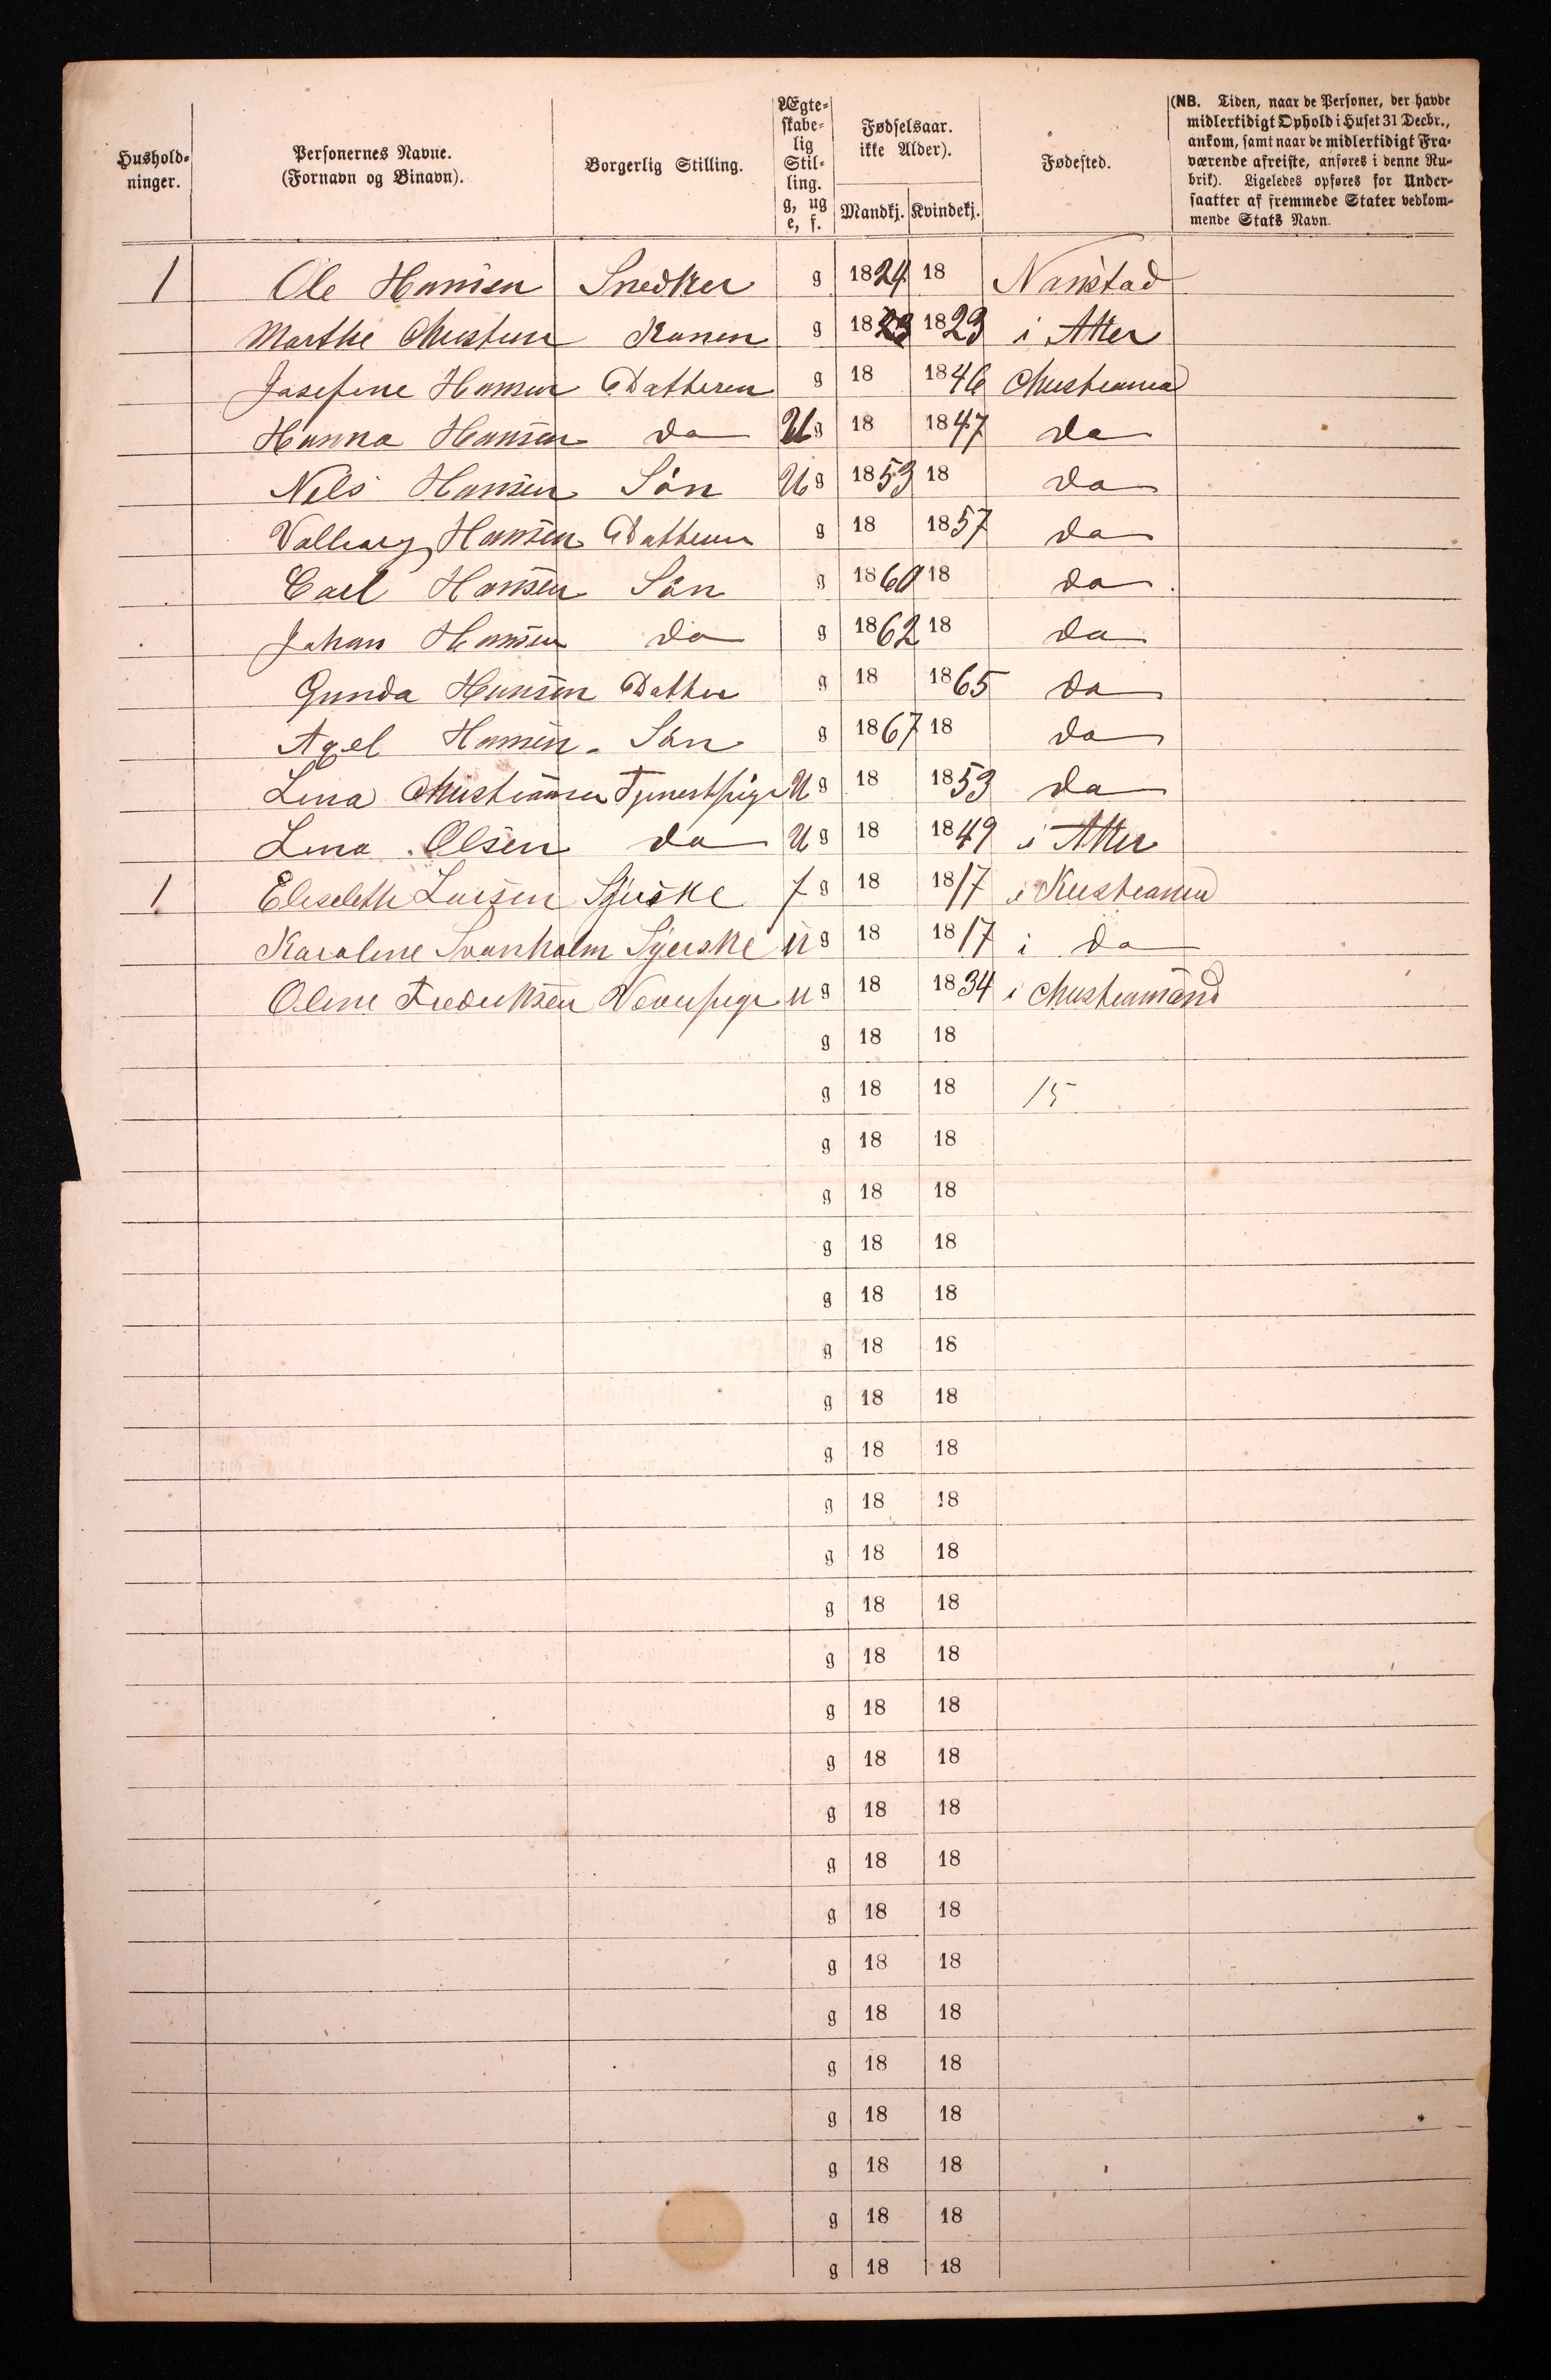 Hushold-
ninger.
Personernes Navne.
(Fornavn og Binavn).
Borgerlig Stilling.
Ægte-
skabe-
lig
Stil-
ling.
g, ug
e, f.
Fødselsaar.
ikke Alder).
Mandkj. Kvindekj.
Fødested.
(NB. Tiden, naar de Personer, der havde
midlertidigt Ophold i Huset 31 Decbr.,
ankom, samt naar de midlertidigt Fra-
værende afreiste, anføres i denne Ru-
brik). Ligeledes opføres for Under-
saatter af fremmede Stater vedkom-
mende Stats Navn.
1 Ole Hansen Snedker g 1824 18
Marthe Christine Konen g 1823 1823 i Atter
Josefine Hansen Datteren g 18 1846 Christiania
Hanna Hansen do Ug 18 1847 do
Nils Hansen Sön Ug 1853 18 do
Valborg Hansen Datteren g 18 1857 do
Carl Hansen Sön g 1860 18 do
Johan Hansen do g 1862 18 do
Gunda Hansen Datter g 18 1865 do
Axel Hansen Sön g 1867 18 do
Lina Christiansen Tjenestpige Ug 18 1853 do
Lina Olsen do Ug 18 1849 i Atter
1 Eliseleth Larsen Syerske f g 18 1817 i Kristiania
Karoline Svanholm Syerske ug 18 1817 i do
Oline Fredriksen Veverpige ug 18 1834 i Christiansand
g 18 18
g 18 18 15
g 18 18
g 18 18
g 18 18
g 18 18
g 18 18
g 18 18
g 18 18
g 18 18
g 18 18
g 18 18
g 18 18
g 18 18
g 18 18
g 18 18
g 18 18
g 18 18
g 18 18
g 18 18
g 18 18
g 18 18
g 18 18
g 18 18
g 18 18